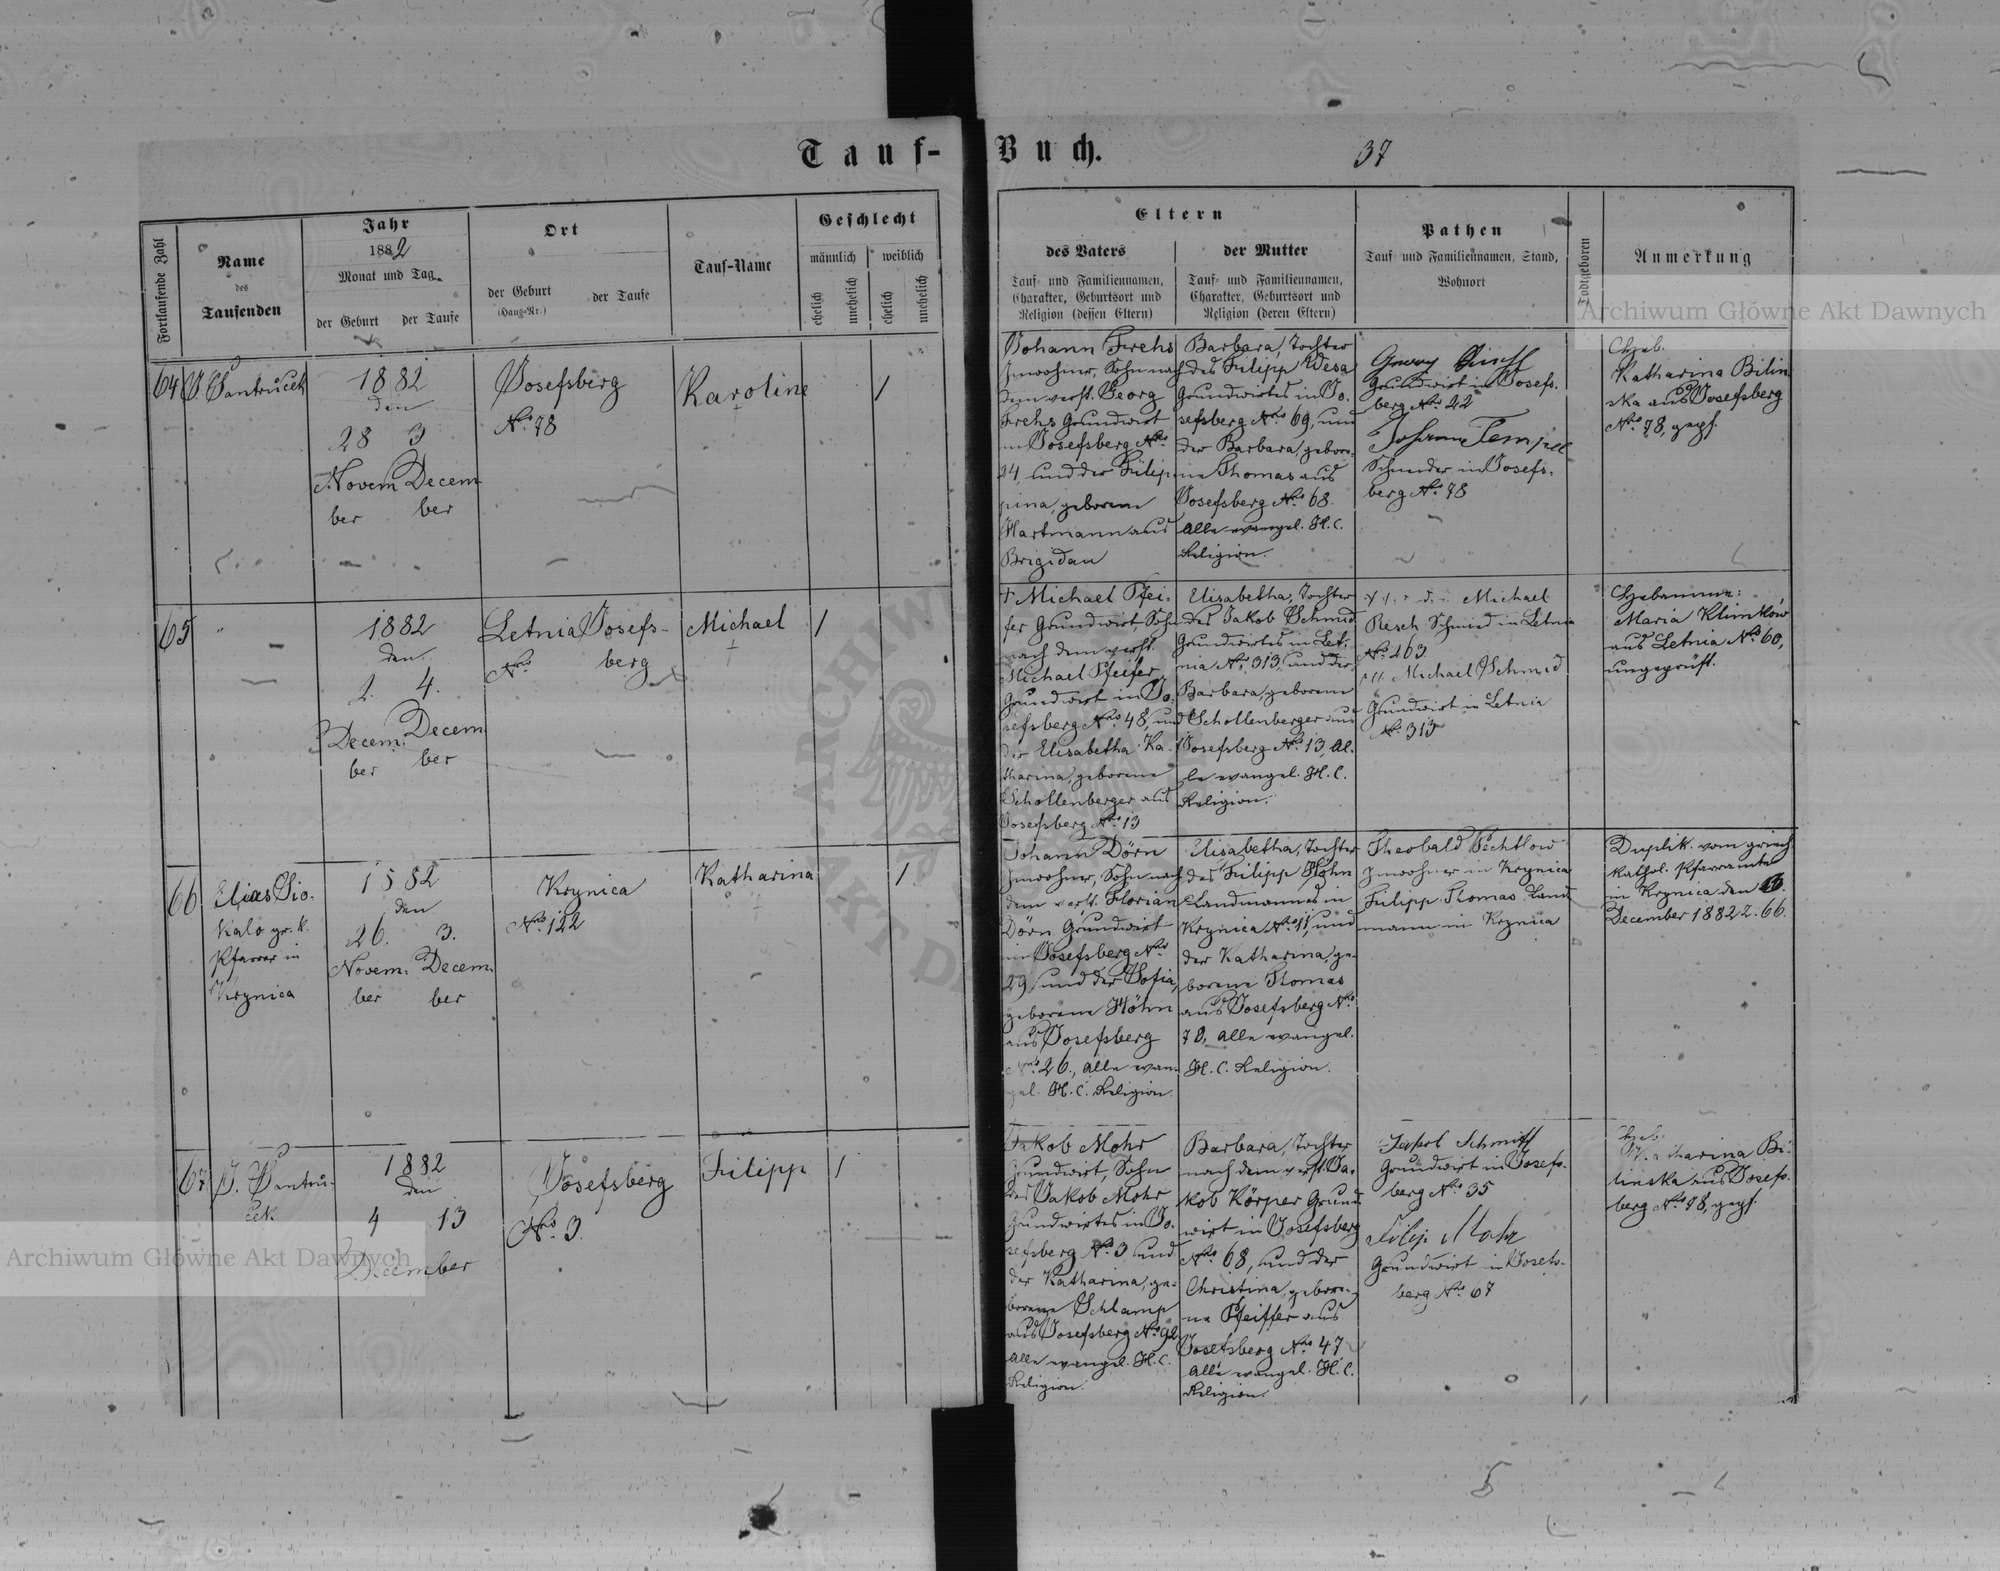 Tauf-Buch.
37
Fortlaufende Zahl
Name
des
Taufenden
Jahr
1882
Monat und Tag
der Geburt
der Taufe
Ort
der Geburt
(Haus-Nr.)
der Taufe
Tauf-Name
Geschlecht
männlich
weiblich
ehelich
unehelich
ehelich
unehelich
Eltern
des Vaters
Tauf- und Familiennamen,
Charakter, Geburtsort und
Religion (dessen Eltern)
der Mutter
Tauf- und Familiennamen,
Charakter, Geburtsort und
Religion (deren Eltern)
Pathen
Tauf- und Familiennamen, Stand,
Wohnort
Todtgeboren
Anmerkung
64
J. Jantruček
1882
den
28 3
Novem Decem
ber ber
Josefsberg
Nro 78
Karoline
1
Johann
Inwohner, Sohn nach
dem verst. Georg
Grundwirt
in Josefsberg Nro
24, und der Filip
pina, geborene
Hartmann aus
Brigidau
Barbara, Tochter
des Filipp Wesa
Grundwirtes in Jo.
sefsberg Nro 69, und
der Barbara, gebore.
ne Thomas aus
Josefsberg Nro 68.
Alle evangel. H. C.
Religion.
Georg
Grundwirt in Josefs.
berg Nro 22
Johann Tempel
Schneider in Josefs.
berg Nro 78
Heb.
Katharina Bilin
ska aus Josefsberg
Nro 78, gepf.
65
"
1882
den
2. 4.
Decem. Decem
ber ber
Letnia Josefs-
Nro berg
Michael
1
+ Michael Pfei.
fer Grundwirt, Sohn
nach dem verst.
Michael Pfeifer
Grundwirt in Jo.
sefsberg Nro 48, und
der Elisabetha Ka.
tharina, geborene
Schollenberger aus
Josefsberg Nro 13
Elisabetha, Tochter
des Jakob Schmid
Grundwirtes in Let.
nia Nro 313, und der
Barbara, geborene
Schollenberger aus
Josefsberg Nro 13 Al.
le evangel. H. C.
Religion.
Michael
Resch Schmied in Letnia
Nro 463
Michael Schmid
Grundwirt in Letnia
Nro 313
Hebamme:
Maria Klimków
aus Letnia Nro 60,
ungeprüft.
66
Elias Sio.
kalo gr. k.
Pfarrer in
Krynica
1882
den
26. 3.
Novem. Decem.
ber ber
Krynica
Nro 122
Katharina
1
Johann Dörn
Inwohner, Sohn nach
dem verst. Florian
Dörn Grundwirt
in Josefsberg Nro
29, und der Sofia,
geborene Höhn
aus Josefsberg
Nro 26., alle evan
gel. H. C. Religion.
Elisabetha, Tochter
des Filipp Höhn
Landmannes in
Krynica Nro 11, und
der Katharina, ge.
borene Thomas
aus Josefsberg Nro
78, alle evangel.
H. C. Religion.
Theobald Pechtlow
Inwohner in Krynica
Filipp Thomas Land
mann in Krynica
Duplik. vom griech
kathol. Pfarramte
in Krynica den
December 1882 Z. 66.
67
J. Jantru.
ček
1882
den
4 13
December
Josefsberg
Nro 3.
Filipp
1
Jakob Mohr
Grundwirt, Sohn
des Jakob Mohr
Grundwirtes in Jo.
sefsberg Nro 3 und
der Katharina, ge.
borene Schlamp
aus Josefsberg Nro 92
Alle evangel. H. C.
Religion.
Barbara, Tochter
nach dem verst. Ja.
kob Körper Grund
wirt in Josefsberg
Nro 68, und der
Christina, gebore.
ne Pfeiffer aus
Josefsberg Nro 47
Alle evangel. H. C.
Religion.
Jakob Schmitt
Grundwirt in Josefs.
berg Nro 35
Filip Mohr
Grundwirt in Josefs.
berg Nro 67
Heb.
Katharina Bi.
linska aus Josefs.
berg Nro 78, gepf.
Archiwum Główne Akt Dawnych
Archiwum Główne Akt Dawnych